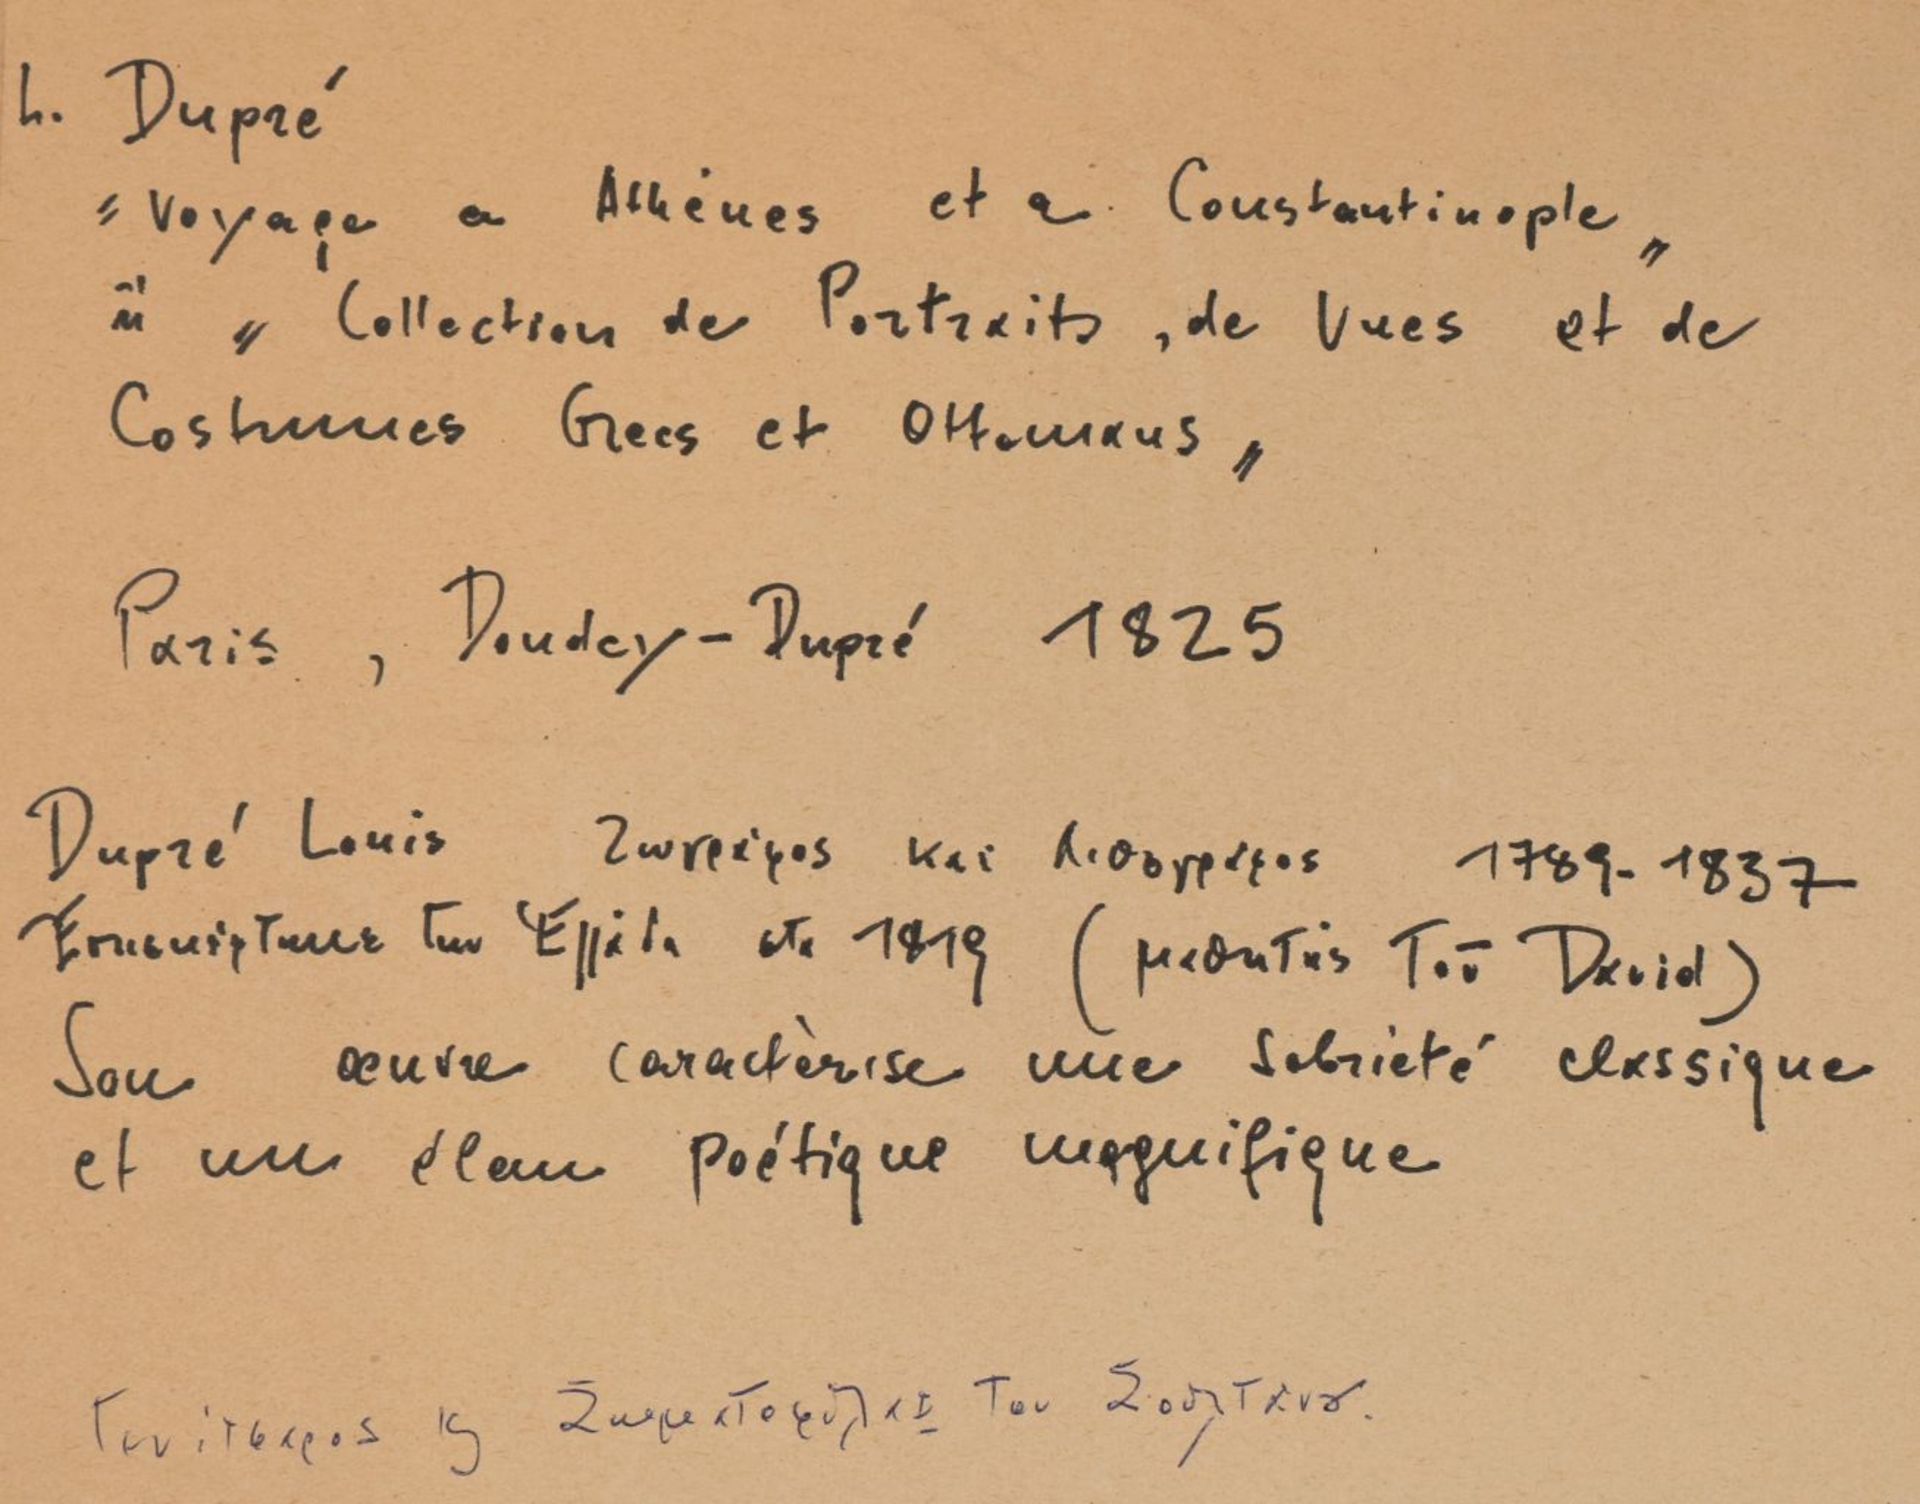 L. Dupré
"Voyage a Athènes et a Constantinople"
ἤ "Collection de Portraits, de Vues et de
Costumes Grecs et Ottomans"
Paris, Dondey-Dupré 1825
Dupré Louis Ζωγράφος καί Λιθογράφος 1789-1837
Ἐπισκέφτηκε τήν Ἑλλάδα στα 1819 (μαθητής τοῦ David)
Son œuvre caractèrise une sobrieté classique
et un élan poétique magnifique
Γενίτσαρος κ Σωματοφύλαξ του Σουλτάνου.